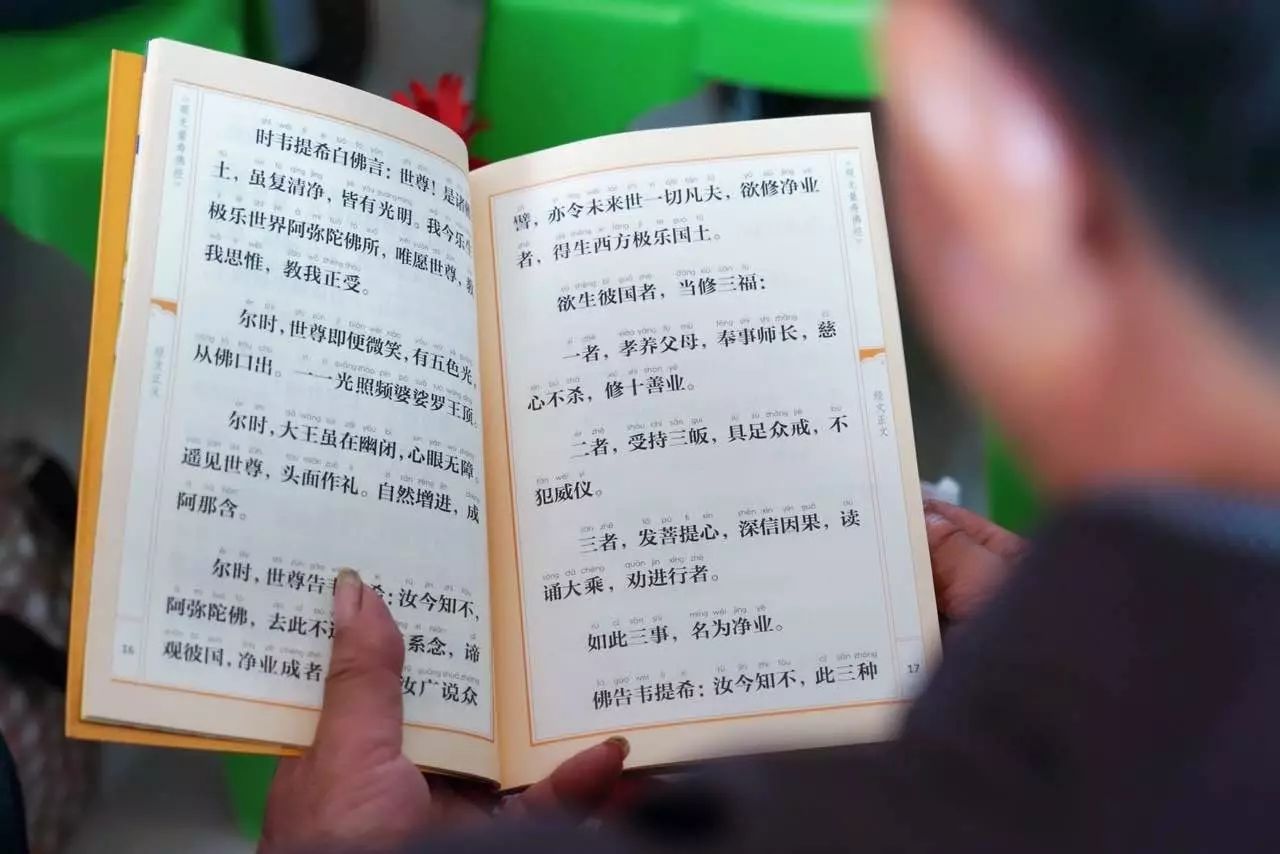 时韦提希白佛言：世尊！是诸
土，虽复清净，皆有光明。我今乐生
极乐世界阿弥陀佛所，唯愿世尊，教
我思惟，教我正受。
尔时，世尊即便微笑，有五色光，
从佛口出。一一光照频婆娑罗王顶。
尔时，大王虽在幽闭，心眼无障。
遥见世尊，头面作礼。自然增进，成
阿那含。
尔时，世尊告韦希：汝今知不，
阿弥陀佛，去此不系念，谛
观彼国，净业成者汝广说众
16
经文正文
譬，亦令未来世一切凡夫，欲修净业
者，得生西方极乐国土。
欲生彼国者，当修三福：
一者，孝养父母，奉事师长，慈
心不杀，修十善业。
二者，受持三皈，具足众戒，不
犯威仪。
三者，发菩提心，深信因果，读
诵大乘，劝进行者。
如此三事，名为净业。
佛告韦提希：汝今知不，此三种
17
经文正文